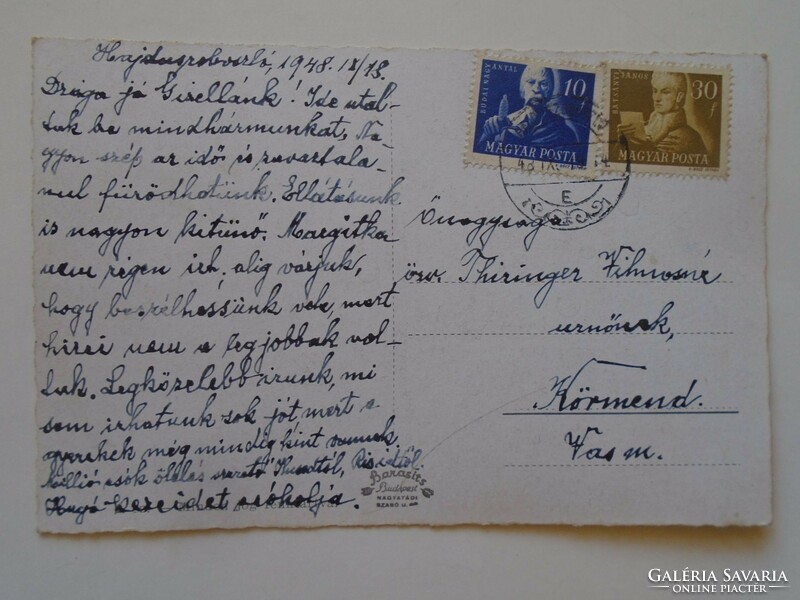 Hajduszoboszló, 1948. IX/18.
Drága jó Gizellánk! Ide utal-
tak be mindhármunkat, Na-
gyon szép az idő és zavartala-
nul fürödhetünk. Ellátásunk
is nagyon kitünő. Margitka
nem régen irh. alig várjuk,
hogy beszélhessünk vele, mert
hirei nem a legjobbak vol-
tak. Legközelebb irunk, mi
sem irhatunk sok jót, mert a
gyerekek még mindig kint vannak.
Millió csók ölelés szerető
Hugó kezeidet csókolja.
BUDAI NAGY ANTAL
10
MAGYAR POSTA
BATSÁNYI JÁNOS
30 f
MAGYAR POSTA
48 IX.
E
Őnagysága
özv. Thiringer Vilmosné
urnőnek,
Körmend.
Vas m.
Barasits
Budapest
NAGYATÁDI
SZABÓ U.
GALÉRIA SAVARIA
ONLINE PIACTÉR